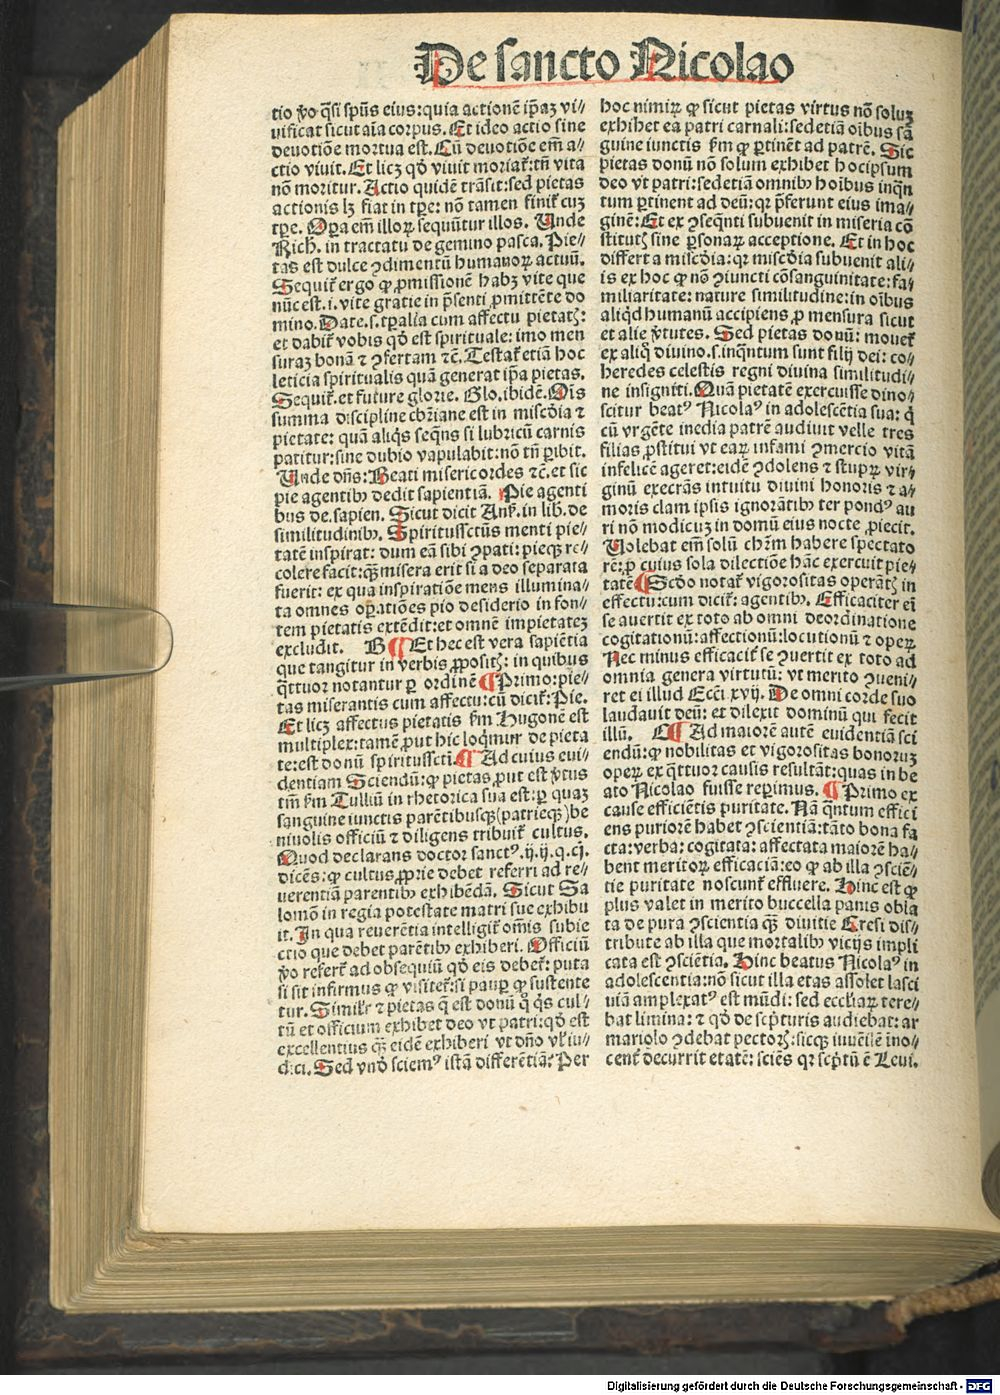 De sancto Nicolao
tio ṽo qͣsi spũs eius: quia actionẽ ip̃aꝫ vi//
uificat sicut aĩa corpus. Et ideo actio sine
deuotiõe mortua est. Cũ deuotiõe em̃ a//
ctio viuit. Et licꝫ qď viuit moriat̃: tñ vita
nõ moritur. Actio quidẽ trãsit: sed pietas
actionis lꝫ fiat in tp̃e: nõ tamen finit̃ cuꝫ
tp̃e. Oꝑa em̃ illoꝝ sequũtur illos. Unde
Rich. in tractatu de gemino pasca. Pie//
tas est dulce ꝯdimentũ humanoꝝ actuũ.
Sequit̃ ergo ꝙ ꝓmissionẽ habꝫ vite que
nũc est. i. vite gratie in p̃senti ꝓmittẽte do
mino. Date. s. tꝑalia cum affectu pietatꝭ:
et dabit̃ vobis qď est spirituale: imo men
suraꝫ bonã ⁊ ꝯfertam ⁊c̃. Testat̃ etiã hoc
leticia spiritualis quã generat ip̃a pietas.
Sequit̃. et future glorie. Glo. ibidẽ. Ois
summa discipline chr̃iane est in miscďia ⁊
pietate: quã aliq̃s seq̃ns si lubricũ carnis
patitur: sine dubio vapulabit: nõ tñ ꝑibit.
Unde dñs: Beati misericordes ⁊c̃. et sic
pie agentibꝰ dedit sapientiã. Pie agenti
bus de. sapien. Sicut dicit Anß. in lib. de
similitudinibꝰ. Spiritussctũs menti pie//
tatẽ inspirat: dum eã sibi ꝯpati: pieqꝫ re//
colere facit: qꝫ̃ misera erit si a deo separata
fuerit: ex qua inspiratiõe mens illumina//
ta omnes oꝑatiões pio desiderio in fon//
tem pietatis extẽdit: et omnẽ impietateꝫ
excludit. B ¶ Et hec est vera sapiẽtia
que tangitur in verbis ꝓpositꝭ: in quibus
q̃ttuor notantur ꝑ ordinẽ ¶ Primo: pie//
tas miserantis cum affectu: cũ dicit̃: Pie.
Et licꝫ affectus pietatis ẞm Hugonẽ est
multiplex: tamẽ ꝓut hic loq̃mur de pieta
te: est donũ spiritussctĩ. ¶ Ad cuius eui//
dentiam Sciendũ: ꝙ pietas ꝓut est ꝟtus
tm̃ ẞm Tulliũ in rhetorica sua est: ꝑ quaꝫ
sanguine iunctis parẽtibusqꝫ (patrieqꝫ) be
niuolis officiũ ⁊ diligens tribuit̃ cultus.
Quod declarans doctor sanctꝰ. ij. ij. q. cj.
dicẽs: ꝙ cultus ꝓprie debet referri ad re//
uerentiã parentibꝰ exhibẽdã. Sicut Sa
lomõ in regia potestate matri sue exhibu
it. In qua reuerẽtia intelligit̃ om̃is subie
ctio que debet parẽtibꝰ exhiberi. Officiũ
ṽo refert̃ ad obsequiũ qď eis debet̃: puta
si sit infirmus ꝙ visitet̃: si pauꝑ ꝙ sustente
tur. Simil̃r ⁊ pietas q̃ est donũ qͦ q̃s cul//
tũ et officium exhibet deo vt patri: qď est
excellentius qꝫ̃ eidẽ exhiberi vt dño vl̃ iu//
dici. Sed vnď sciemꝰ istã differẽtiã: Per
hoc nimiꝝ ꝙ sicut pietas virtus nõ soluꝫ
exhibet ea patri carnali: sed etiã oĩbus sã
guine iunctis ẞm ꝙ ꝑtinẽt ad patrẽ. Sic
pietas donũ nõ solum exhibet hocipsum
deo vt patri: sed etiã omnibꝰ hoĩbus inq̃n
tum ꝑtinent ad deũ: qꝛ p̃ferunt eius ima//
ginẽ: Et ex ꝯseq̃nti subuenit in miseria cõ
stitutꝭ sine ꝑsonaꝝ acceptione. Et in hoc
differt a miscďia: qꝛ miscďia subuenit ali//
is ex hoc ꝙ nõ ꝯiuncti cõsanguinitate: fa//
miliaritate: nature similitudine: in oĩbus
aliqď humanũ accipiens ꝓ mensura sicut
et alie ꝟtutes. Sed pietas donũ: mouet̃
ex aliq̃ diuino. s. inq̃ntum sunt filij dei: co//
heredes celestis regni diuina similitudi//
ne insigniti. Quã pietatẽ exercuisse dino//
scitur beatꝰ Nicolaꝰ in adolescẽtia sua: q̃
cũ vrgẽte inedia patrẽ audiuit velle tres
filias ꝓstitui vt eaꝝ infami ꝯmercio vitã
infelicẽ ageret: eidẽ ꝯdolens ⁊ stupꝝ vir//
ginũ execrãs intuitu diuini honoris ⁊ a//
moris clam ipsis ignorãtibꝰ ter pondꝰ au
ri nõ modicuꝫ in domũ eius nocte ꝓiecit.
Uolebat em̃ solũ chr̃m habere spectato
rẽ: ꝓ cuius sola dilectiõe hãc exercuit pie//
tatẽ ¶ Scďo notat̃ vigorositas operãtꝭ in
effectu: cum dicit̃: agentibꝰ. Efficaciter ei
se auertit ex toto ab omni deordinatione
cogitationũ: affectionũ: locutionũ ⁊ opeꝝ
Nec minus efficacit̃ se ꝯuertit ex toto ad
omnia genera virtutũ: vt merito ꝯueni//
ret ei illud Ecc̃i xvij. De omni corde suo
laudauit deũ: et dilexit dominũ qui fecit
illũ. C ¶ Ad maiorẽ autẽ euidentiã sci
endũ: ꝙ nobilitas et vigorositas bonoruꝫ
opeꝝ ex q̃ttuor causis resultãt: quas in be
ato Nicolao fuisse reperimus. ¶ Primo ex
cause efficiẽtis puritate. Nã q̃ntum effici
ens puriorẽ habet ꝯscientiã: tãto bona fa
cta: verba: cogitata: affectata maiorẽ ha//
bent meritoꝝ efficaciã: eo ꝙ ab illa ꝯsciẽ//
tie puritate noscunt̃ effluere. Hinc est ꝙ
plus valet in merito buccella panis obla
ta de pura ꝯscientia qꝫ̃ diuitie Eresi dis//
tribute ab illa que mortalibꝰ vicijs impli
cata est ꝯsciẽtia. Hinc beatus Nicolaꝰ in
adolescentia: nõ sicut illa etas assolet lasci
uiã amplexatꝰ est mũdi: sed eccl̃iaꝝ tere//
bat limina: ⁊ qď de sc̃pturis audiebat: ar
mariolo ꝯdebat pectorꝭ: sicqꝫ iuuẽilẽ ĩno//
cent̃ decurrit etatẽ: sciẽs qꝛ sc̃ptũ ẽ Leui.
Digitalisierung gefördert durch die Deutsche Forschungsgemeinschaft - DFG